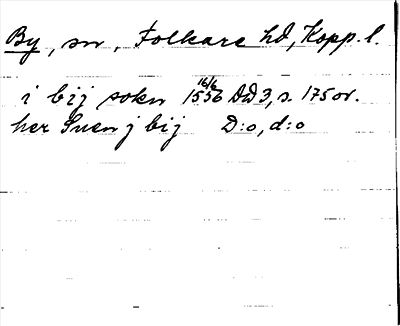 By, sn, Folkare hd, Kopp. l.
i bij sokn 16/6 1556 DD 3, s. 175 or.
her Suen j bij D:o, d:o